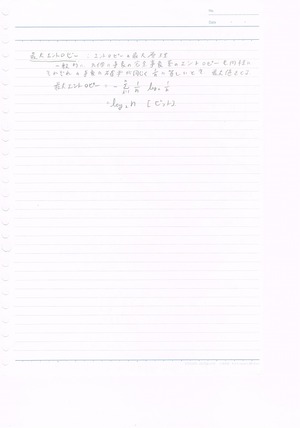 最大エントロピー : エントロピーの最大値は
一般的に n個の事象の完全事象系のエントロピーを
それぞれの事象の確率が全て等しいとき 最大値となる
最大エントロピー = - Σ 1/n log₂ 1/n
= log₂ n [ビット]